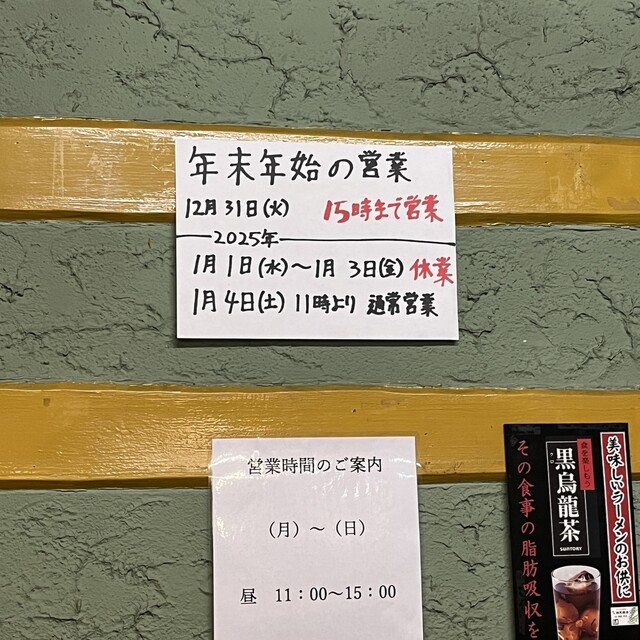 年末年始の営業
12月31日(火) 15時まで営業
2025年
1月1日(水)～1月3日(金)休業
1月4日(土)11時より 通常営業
営業時間のご案内
（月）～（日）
昼 11：00～15：00
美味しいラーメンのお供に
食を楽しもう
黒烏龍茶
SUNTORY
その食事の脂肪吸収を